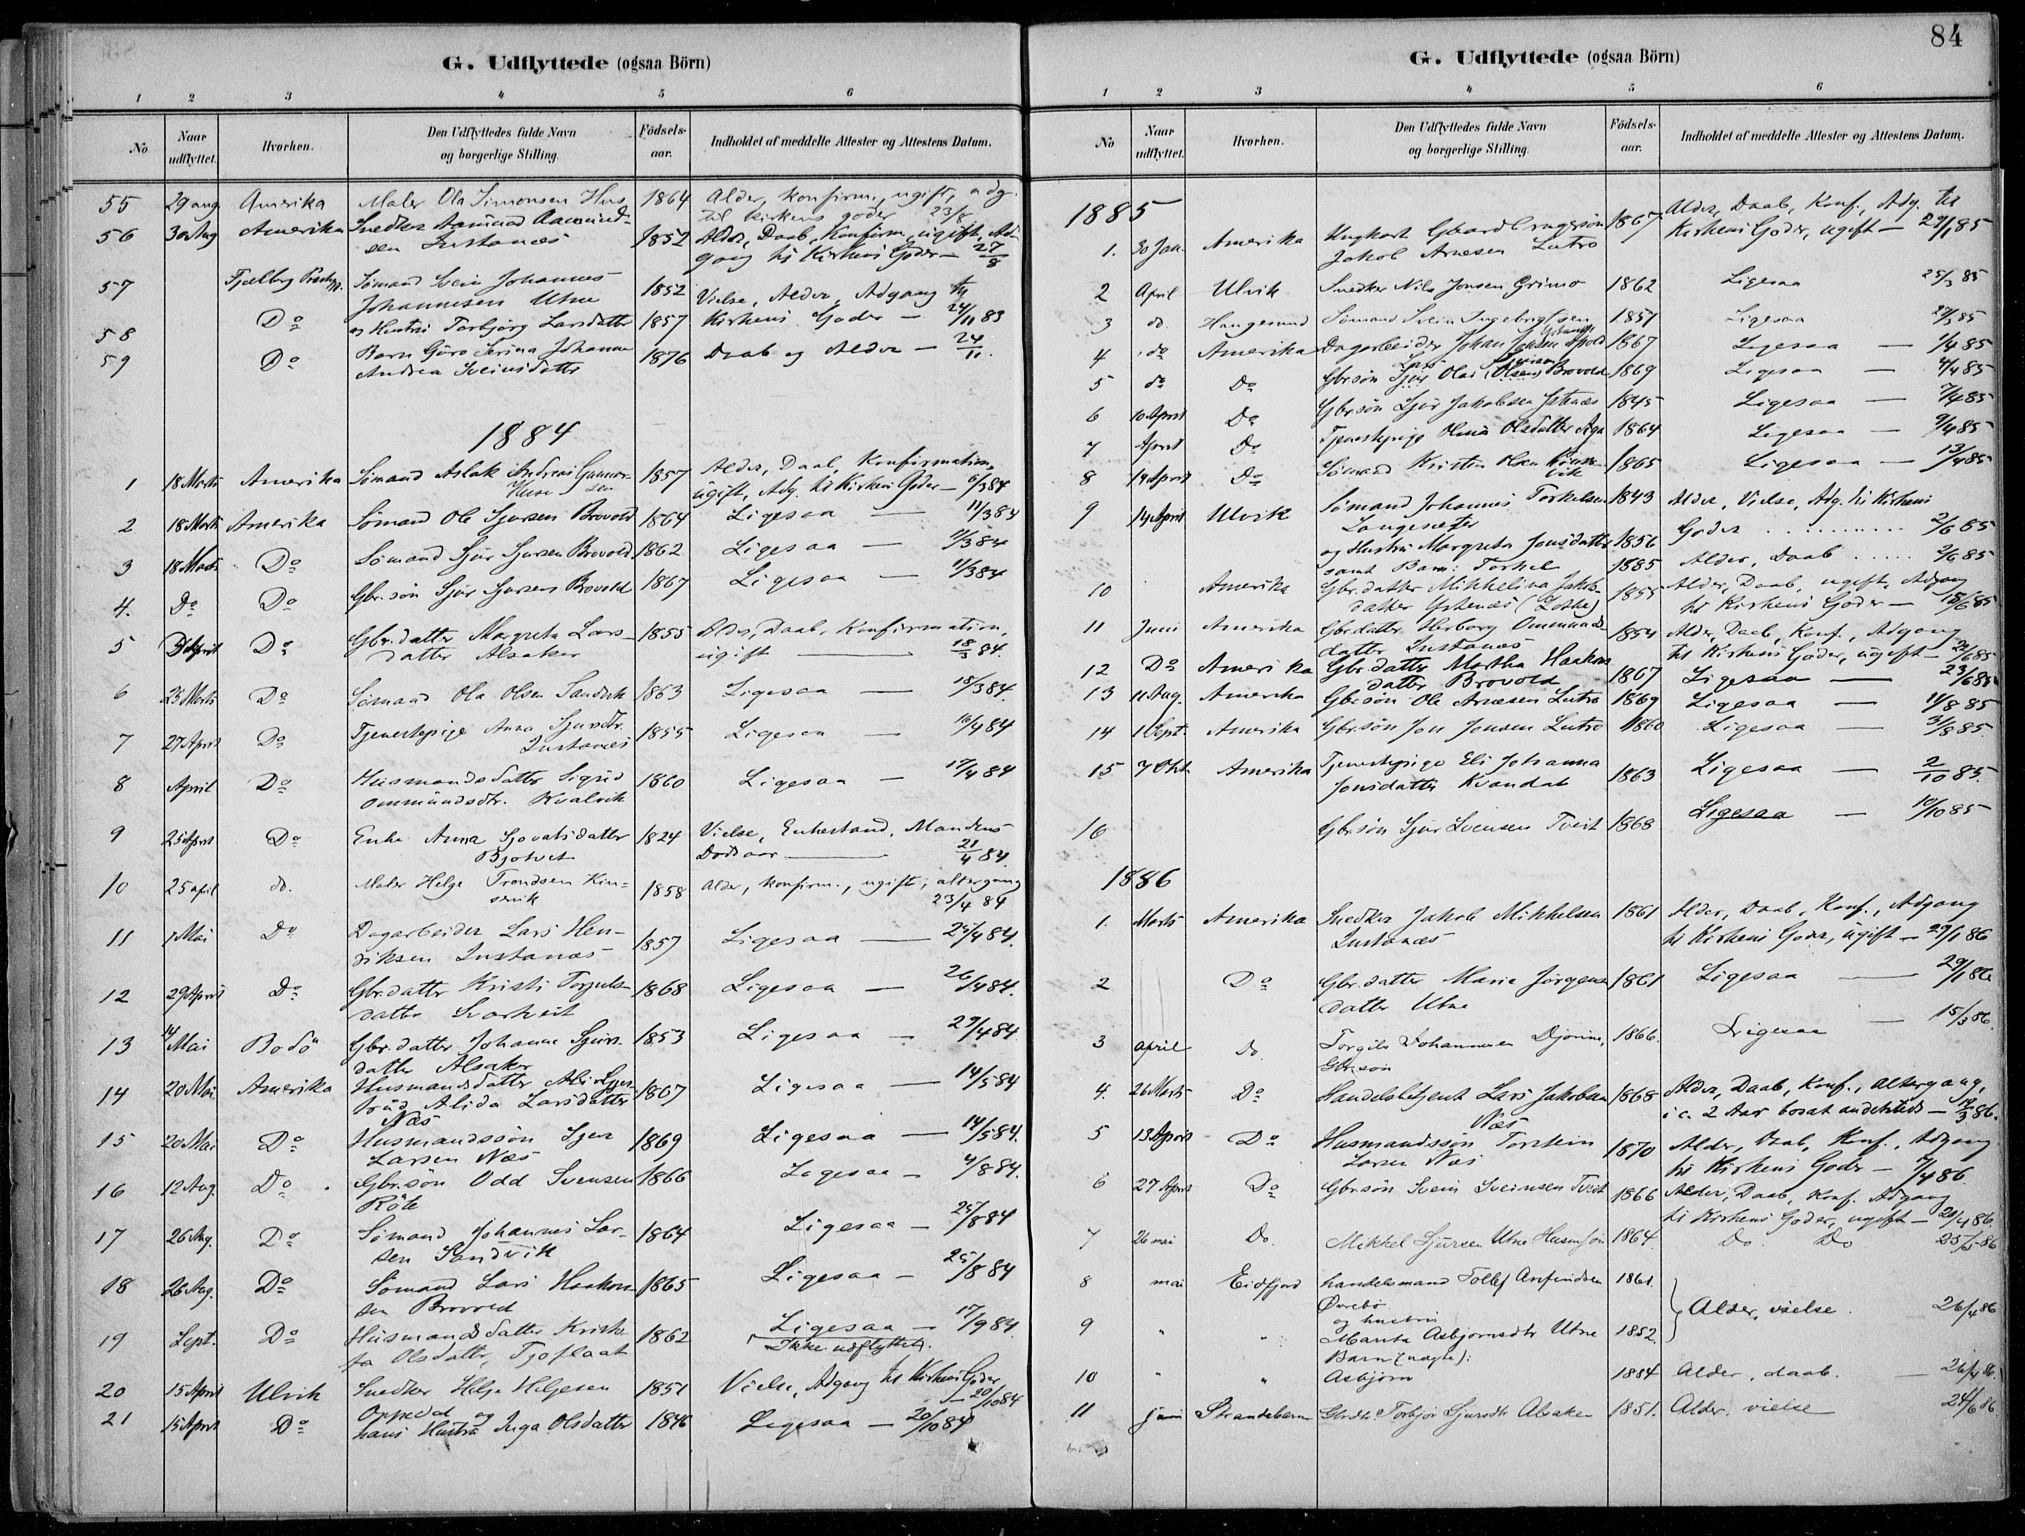 G. Udflyttede (ogsaa Börn)
1 2 3 4 5 6
No
Naar udflyttet.
Hvorhen.
Den Udflyttedes fulde Navn og borgerlige Stilling.
Födsels-aar.
Indholdet af meddelte Attester og Attestens Datum.
55 29 aug Amerika Maler Ola Simonsen Hus 1864 Alder, konfirm., ugift, adg.
til kirkens goder 23/8
56 30 Aug Amerika Snedker Aamund Aamund- 1852 Alder, Daab, Konfirm, ugift, Ad-
sen Instanæs gang til Kirkens Goder — 27/8
57 Fjelberg Sømand Svein Johannes 1852
Johannesen Utne Vielse, Alder, Adgang til
58 Do og Hustru Torbjørg Larsdatter 1857 Kirkens Goder — 24/11 83
59 Do Barn Göro Serina Johanne 1876 Daab og Alder — 24/11.
Andrea Sveinsdatter
1884
1 18 Marts Amerika Sømand Aslak Andreas Gunnar- 1857 Alder, Daab, Konfirmation,
Huse sen ugift, Adg. til Kirkens Goder — 6/3 84
2 18 Marts Amerika Sømand Ole Sjursen Brovold 1864 Ligesaa — 11/3 84
3 18 Marts Do Sømand Sjur Sjursen Brovold 1862 Ligesaa — 11/3 84
4. Do Do Gbr.søn Sjur Sjursen Brovold 1867 Ligesaa — 11/3 84
5 April Do Gbr.datter Margreta Lars- 1855 Alder, Daab, Konfirmation,
datter Alsaker ugift — 18/3 84.
6 23 Marts Do Sømand Ola Olsen Sandvik 1863 Ligesaa — 18/3 84.
7 27 April Do Tjenestepige Anna Sjursdtr. 1855 Ligesaa — 16/4 84
Instanæs
8 April Do Husmandsdatter Sigrid 1860 Ligesaa — 17/4 84
Ommundsdtr. Kvalvik
9 25 April Do Enke Anna Sjovatsdatter 1824 Vielse, Enkestand, Mandens
Bjotveit Dødsaar — 21/4 84.
10 25 april do. Maler Helge Trondsen Kin- 1858 Alder, konfirm., ugift, altergang
servik 23/4 84
11 1 Mai Do Dagarbeider Lars Hen- 1857 Ligesaa — 25/4 84.
riksen Instanæs
12 29 April Do Gbr.datter Kristi Torgils- 1868 Ligesaa — 26/4 84.
datter
13 14 Mai Bodö Gbr.datter Johanne Sjurs- 1853 Ligesaa — 29/4 84.
datter Alsaker
14 20 Mai Amerika Husmandsdatter
Alida Larsdatter 1867 Ligesaa — 14/5 84
Næs
15 20 Mai Do Husmandssøn Sjur 1869 Ligesaa — 14/5 84.
Larsen Næs
16 12 Aug. Do Gbr.søn Odd Svensen 1866 Ligesaa — 4/8 84.
Røte
17 26 Aug. Do Sømand Johannes Lar- 1864 Ligesaa — 25/8 84
sen Sandvik
18 26 Aug. Do Sømand Lars Haakon- 1865 Ligesaa — 25/8 84
sen Brovold
19 Sept. Do Husmandsdatter Krist- 1862 Ligesaa — 17/9 84.
fa Olsdatter, Tjoflaat Ikke udflyttet.
20 15 April Ulvik Snedker Helge Helgesen 1851 Vielse, Adgang til Kirkens Goder
Oppedal og — 20/10 84
21 15 April Do hans Hustru Inga Olsdatter 1846 Ligesaa — 20/10 84
84
G. Udflyttede (ogsaa Börn)
1 2 3 4 5 6
No
Naar udflyttet.
Hvorhen.
Den Udflyttedes fulde Navn og borgerlige Stilling.
Födsels-aar.
Indholdet af meddelte Attester og Attestens Datum.
1885
1. 30 Jan. Amerika Ungkarl 1867 Alder, Daab, Konf., Adg. til
Jakob Arnesen Lutro Kirkens Goder, ugift — 29/1 85
2 April Ulvik Snedker Nils Jonsen Grimo 1862 Ligesaa 25/3 85
3 do. Haugesund Sømand Svein Ingebrigtsen 1857 Ligesaa 27/3 85
4 do Amerika Dagarbeider Johan Johan 1867 Ligesaa — 1/4 85
5 do Do Gbr.søn Sjur Olai (Olsen) Brovold 1869 Ligesaa — 4/4 85
6 10 April Do Gbr.søn Sjur Jakobsen 1845 Ligesaa — 7/4 85
7 April Do Tjenestepige Olina Olsdatter Aga 1864 Ligesaa — 9/4 85
8 14 April Do Sømand Kristen Olsen Kinser- 1865 Ligesaa — 13/4 85
vik
9 14 April Ulvik Sømand Johannes Torkelsen 1843 Alder, Vielse, Adg. til Kirkens
Langesæter Goder . . . . . 2/6 85
og Hustru Margreta Jonsdatter 1856
samt Barn: Torkel 1885 Alder, Daab . . . . . 2/6 85
10 Amerika Gbr.datter Mikkelina Jakobs- 1855 Alder, Daab, ugift, Adgang
datter til Kirkens Goder — 18/6 85
11 Juni Amerika Gbr.datter Herborg Ommunds- 1854 Alder, Daab, Konf., Adgang
datter Instanæs til Kirkens Goder, ugift — 22/6 85
12 Do Amerika Gbr.datter Martha Haakons- 1867 Ligesaa — 23/6 85
datter Brovold
13 11 Aug. Amerika Gbr.søn Ole Arnesen Lutro 1869 Ligesaa — 11/8 85
14 1 Sept. Amerika Gbr.søn Jon Jonsen Lutro 1860 Ligesaa — 31/8 85.
15 7 Okt Amerika Tjenestepige Eli Johanna 1863 Ligesaa — 2/10 85.
Jonsdatter Kvandal
16 Gbr.søn Sjur Svensen Tveit 1868 Ligesaa — 10/10 85
1886
1. Marts Amerika Snedker Jakob Mikkelsen 1861 Alder, Daab, Konf., Adgang
Instanæs til Kirkens Goder, ugift — 29/1 86
2 Do Gbr.datter Maria Jørgens- 1861 Ligesaa — 29/1 86
datter Utne
3 april Do. Torgils Johannesen Djønne, 1866. Ligesaa — 15/3 86.
Gbr.søn
4. 26 Marts Do Handelsbetjent Lars Jakobsen 1868 Alder, Daab, Konf., altergang,
Næs i c. 2 Aar bosat andetsteds — 19/3 86.
5 13 April Do Husmandssøn Torstein 1870 Alder, Daab, Konf., Adgang
Larsen Næs til Kirkens Goder — 7/4 86
6 27 April Do Gbr.søn Svein Sveinsen Tveit 1866 Alder, Daab, Konf. Adgang
til Kirkens Goder, ugift — 20/4 86.
7 26 mai Do. Mikkel Sjursen Utne Husm.søn 1864 Do. Do 25/5 86
8 mai Eidfjord handelsmand Tollef Anfindsen 1861.
Øvrebø Alder, vielse. 26/4 86
9 " " og hustru
Marita Asbjørnsdtr Utne 1852.
Barn (uægte):
10 " " Asbjørn 1884 Alder, daab. — 26/4 86.
11 juni Strandebarm Gbrdtr. Torbjør Sjursdtr Alsaker 1851. Alder, vielse 24/6 86